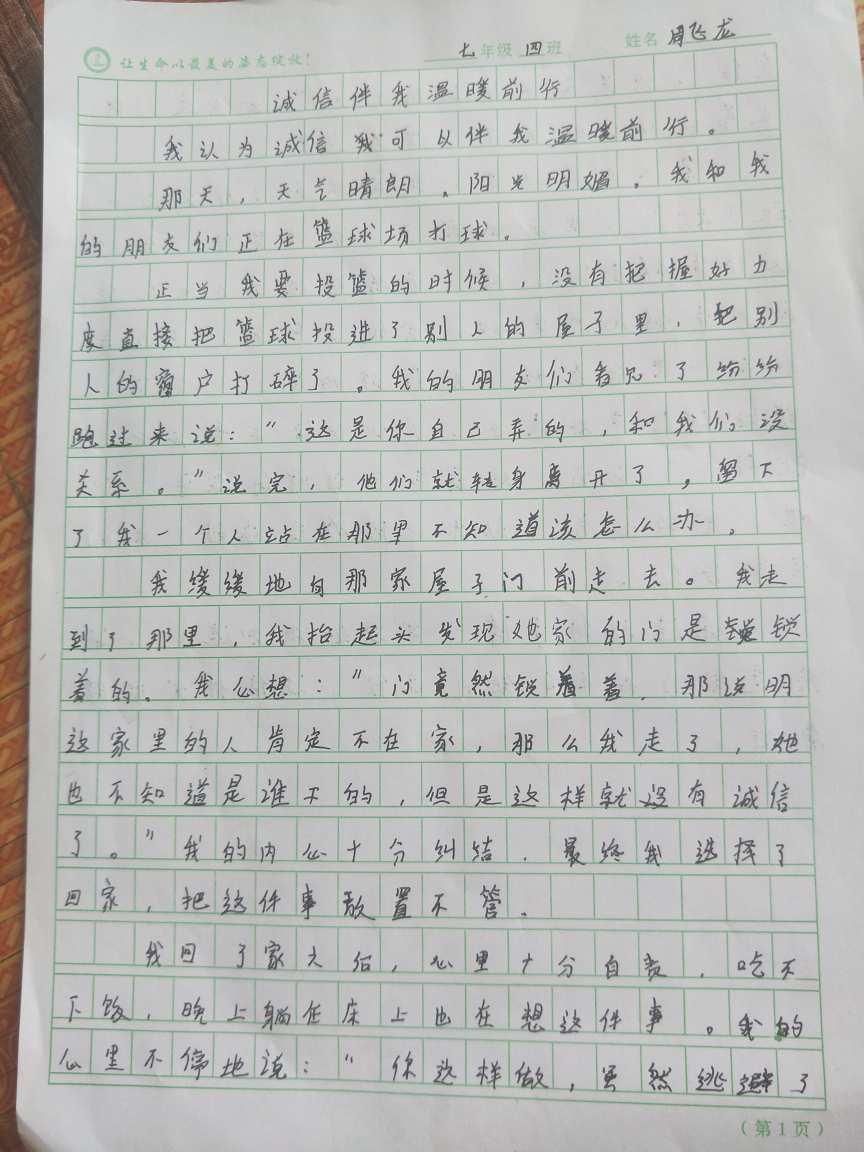 让生命以最美的姿态绽放！ 七年级 四班 姓名 周飞龙
诚信伴我温暖前行
我认为诚信我可以伴我温暖前行。
那天，天气晴朗。阳光明媚。我和我
的朋友们正在篮球场打球。
正当我要投篮的时候，没有把握好力
度直接把篮球投进了别人的屋子里，把别
人的窗户打碎了。我的朋友们看见了纷纷
跑过来说：“这是你自己弄的，和我们没
关系。”说完，他们就转身离开了，留下
了我一个人站在那里不知道该怎么办。
我缓缓地向那家屋子门前走去。我走
到了那里，我抬起头发现她家的门是锁
着的。我心想：“门竟然锁着，那说明
这家里的人肯定不在家，那么我走了，她
也不知道是谁干的，但是这样就没有诚信
了。”我的内心十分纠结，最终我选择了
回家，把这件事放置不管。
我回了家之后，心里十分自责，吃不
下饭，晚上躺在床上也在想这件事。我的
心里不停地说：“你这样做，虽然逃避了
（第1页）